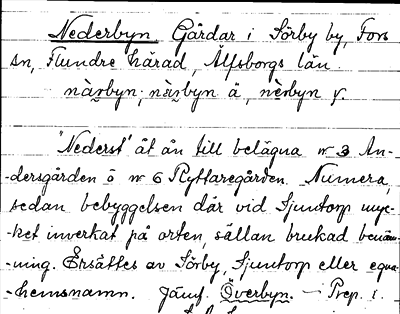 Nederbyn Gårdar i Sörby by, Fors
sn, Flundre härad, Älfsborgs län.
närbyn, näṣbyn ä, nèrbyn y.
"Nederst" åt ån till belägna nr 3 An-
-dersgården o nr 6 Ryttaregården. Numera,
sedan bebyggelsen där vid Sjuntorp myc-
-ket inverkat på orten, sällan brukad benäm-
-ning. Ersättes av Sörby, Sjuntorp eller egna-
-hemsnamn. Jämf. Överbyn. — Prep. i.